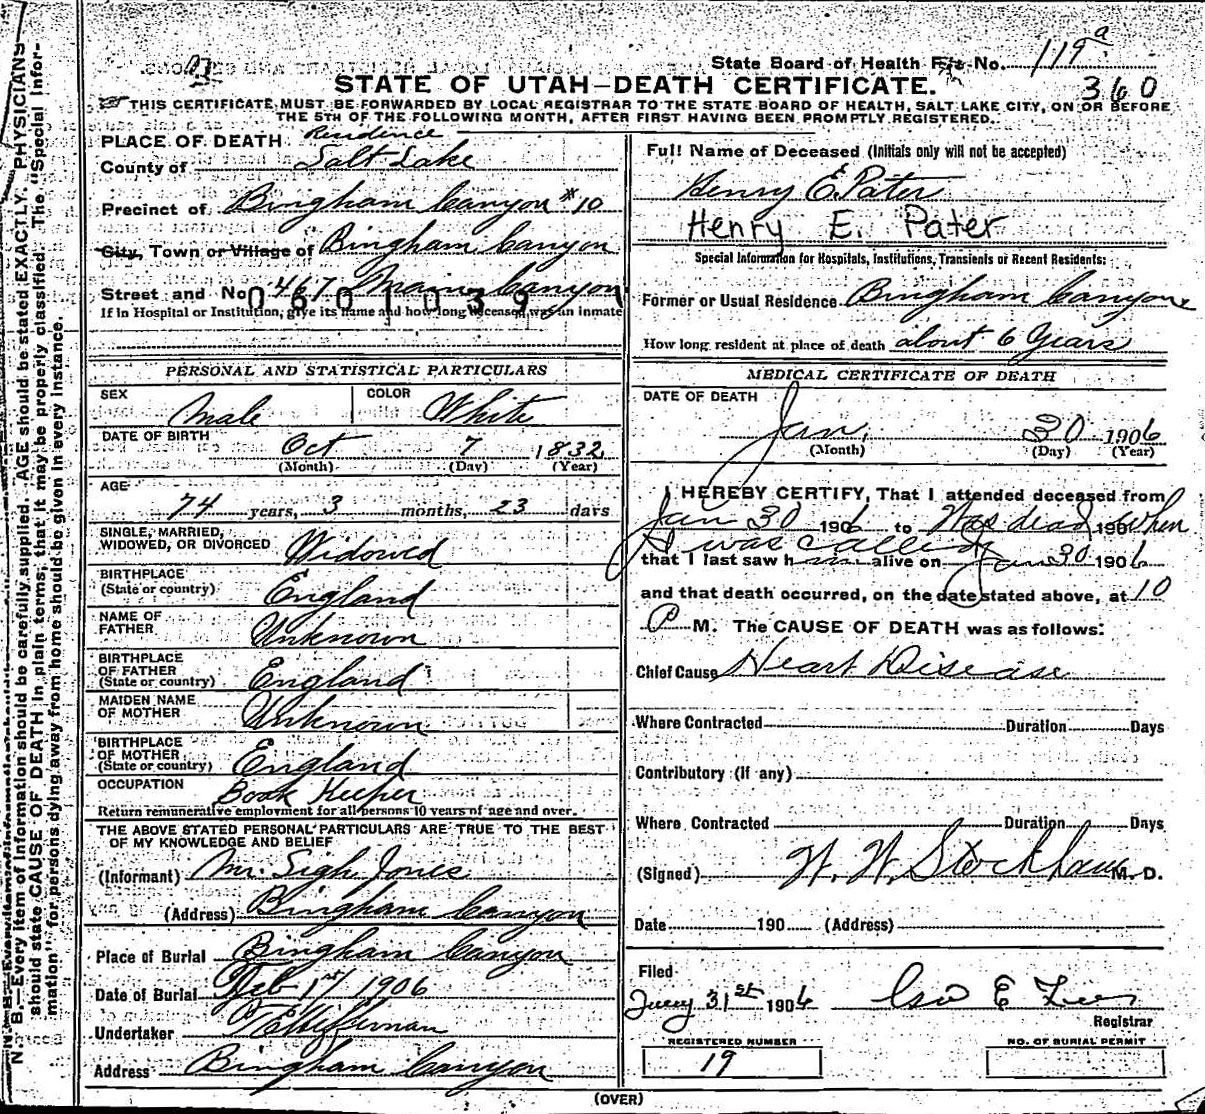 State Board of Health File No. 119a
360
STATE OF UTAH—DEATH CERTIFICATE.
THIS CERTIFICATE MUST BE FORWARDED BY LOCAL REGISTRAR TO THE STATE BOARD OF HEALTH, SALT LAKE CITY, ON OR BEFORE
THE 5TH OF THE FOLLOWING MONTH, AFTER FIRST HAVING BEEN PROMPTLY REGISTERED.
PLACE OF DEATH Residence
County of Salt Lake
Precinct of Bingham Canyon #10
City, Town or Village of Bingham Canyon
Street and No. 467 Main Canyon
0601039
If in Hospital or Institution, give its name and how long deceased was an inmate
PERSONAL AND STATISTICAL PARTICULARS
SEX Male COLOR White
DATE OF BIRTH Oct 7 1832
(Month) (Day) (Year)
AGE
74 years, 3 months, 23 days
SINGLE, MARRIED,
WIDOWED, OR DIVORCED Widowed
BIRTHPLACE
(State or country) England
NAME OF
FATHER Unknown
BIRTHPLACE
OF FATHER
(State or country) England
MAIDEN NAME
OF MOTHER Unknown
BIRTHPLACE
OF MOTHER
(State or country) England
OCCUPATION Book Keeper
Return remunerative employment for all persons 10 years of age and over.
THE ABOVE STATED PERSONAL PARTICULARS ARE TRUE TO THE BEST
OF MY KNOWLEDGE AND BELIEF
(Informant) Mr. Sigh Jones
(Address) Bingham Canyon
Place of Burial Bingham Canyon
Date of Burial Feb 1st 1906
Undertaker
Address Bingham Canyon
Full Name of Deceased (Initials only will not be accepted)
Henry E. Pater
Henry E. Pater
Special Information for Hospitals, Institutions, Transients or Recent Residents:
Former or Usual Residence Bingham Canyon
How long resident at place of death about 6 Years
MEDICAL CERTIFICATE OF DEATH
DATE OF DEATH
Jan, 30 1906
(Month) (Day) (Year)
I HEREBY CERTIFY, That I attended deceased from
Jan 30 1906 to Was dead 190 when
I was called
that I last saw him alive on Jan 30 1906
and that death occurred, on the date stated above, at 10
P M. The CAUSE OF DEATH was as follows:
Chief Cause Heart Disease
Where Contracted Duration Days
Contributory (If any)
Where Contracted Duration Days
(Signed) W. W. Stockham M. D.
Date 190 (Address)
Filed
31st 1906 Geo E
Registrar
REGISTERED NUMBER
19
NO. OF BURIAL PERMIT
(OVER)
N. B.—Every item of information should be carefully supplied. AGE should be stated EXACTLY. PHYSICIANS
should state CAUSE OF DEATH in plain terms, that it may be properly classified. The "Special Infor-
mation" for persons dying away from home should be given in every instance.